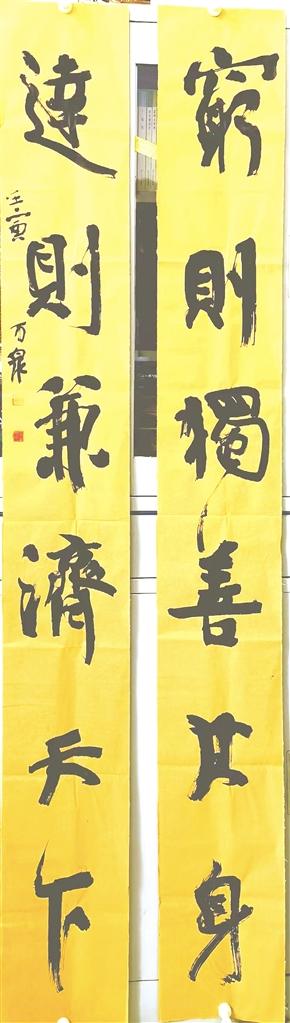 窮則獨善其身
達則兼濟天下
壬寅 万泉